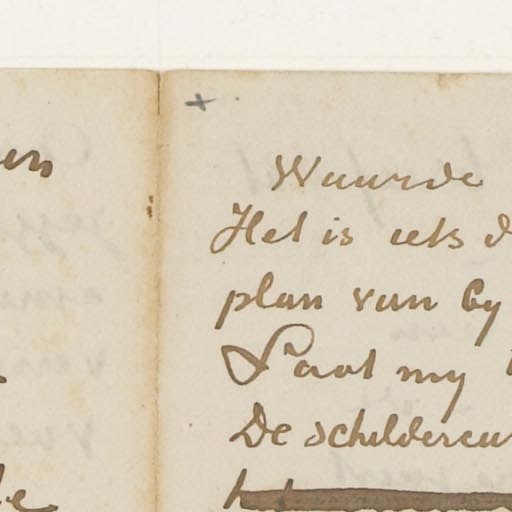 Waarde
Het is iets d
plan van by
Laat my
De schildereien
het